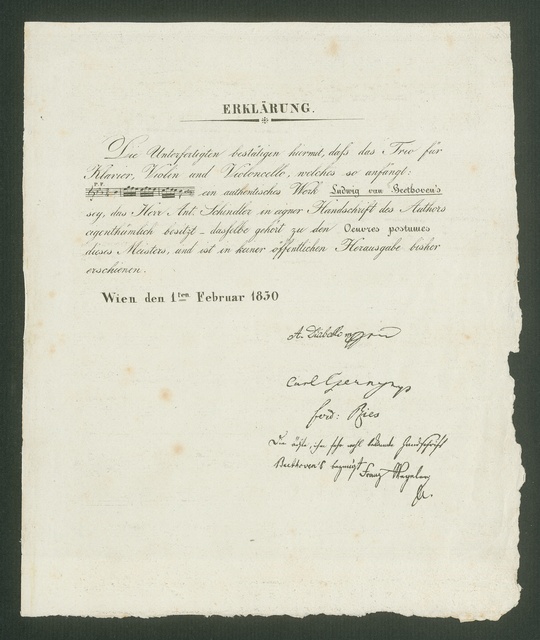 ERKLÄRUNG.
Die Unterfertigten bestätigen hiermit, dafs das Trio für
Klavier, Violin und Violoncello, welches so anfängt:
ein authentisches Werk Ludwig van Beethoven's
sey, das Herr Ant. Schindler in eigner Handschrift des Authors
eigenthümlich besitzt – dasfelbe gehört zu den Oeuvres postumes
dieses Meisters, und ist in keiner öffentlichen Herausgabe bisher
erschienen.
Wien den 1ten Februar 1830
A. Diabelli
Carl Czerny
ferd: Ries
Die ächte, ihm sehr wohl bekannte Handschrift
Beethoven's bezeugt Franz Wegeler